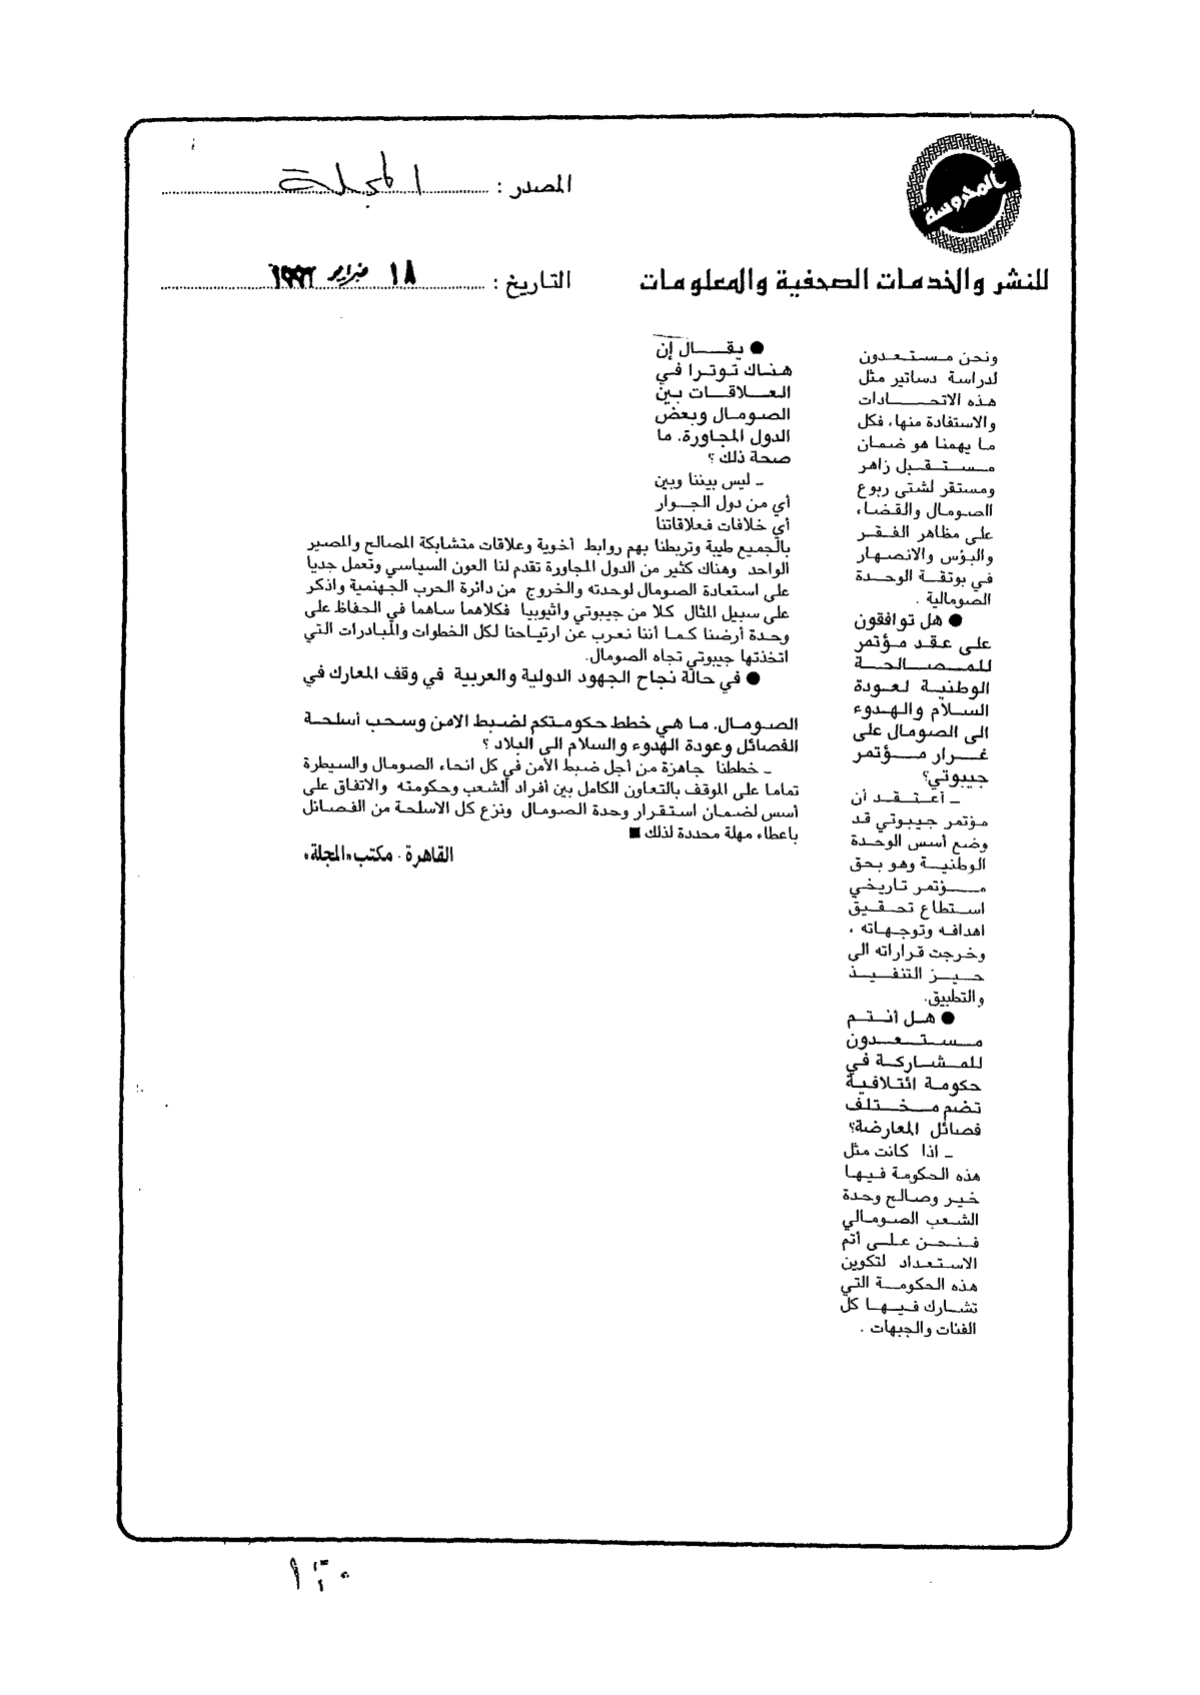 المحروسة
للنشر والخدمات الصحفية والمعلومات
المصدر : المجلة
التاريخ : ١٨ فبراير ١٩٩٢
ونحن مستعدون
لدراسة دساتير مثل
هذه الاتحادات
والاستفادة منها، فكل
ما يهمنا هو ضمان
مستقبل زاهر
ومستقر لشتى ربوع
الصومال والقضاء
على مظاهر الفقر
والبؤس والانصهار
في بوتقة الوحدة
الصومالية .
● هل توافقون
على عقد مؤتمر
للمصالحة
الوطنية لعودة
السلام والهدوء
الى الصومال على
غرار مؤتمر
جيبوتي؟
ـ أعتقد أن
مؤتمر جيبوتي قد
وضع أسس الوحدة
الوطنية وهو بحق
مؤتمر تاريخي
استطاع تحقيق
اهدافه وتوجهاته ،
وخرجت قراراته الى
حيز التنفيذ
والتطبيق.
● هل أنتم
مستعدون
للمشاركة في
حكومة ائتلافية
تضم مختلف
فصائل المعارضة؟
ـ اذا كانت مثل
هذه الحكومة فيها
خير وصالح وحدة
الشعب الصومالي
فنحن على أتم
الاستعداد لتكوين
هذه الحكومة التي
تشارك فيها كل
الفئات والجبهات .
● يقال إن
هناك توترا في
العلاقات بين
الصومال وبعض
الدول المجاورة. ما
صحة ذلك ؟
ـ ليس بيننا وبين
أي من دول الجوار
أي خلافات فعلاقاتنا
بالجميع طيبة وتربطنا بهم روابط أخوية وعلاقات متشابكة المصالح والمصير
الواحد وهناك كثير من الدول المجاورة تقدم لنا العون السياسي وتعمل جديا
على استعادة الصومال لوحدته والخروج من دائرة الحرب الجهنمية واذكر
على سبيل المثال كلا من جيبوتي واثيوبيا فكلاهما ساهما في الحفاظ على
وحدة أرضنا كما أننا نعرب عن ارتياحنا لكل الخطوات والمبادرات التي
اتخذتها جيبوتي تجاه الصومال.
● في حالة نجاح الجهود الدولية والعربية في وقف المعارك في
الصومال. ما هي خطط حكومتكم لضبط الامن وسحب أسلحة
الفصائل وعودة الهدوء والسلام الى البلاد ؟
ـ خططنا جاهزة من أجل ضبط الأمن في كل انحاء الصومال والسيطرة
تماما على الموقف بالتعاون الكامل بين أفراد الشعب وحكومته والاتفاق على
أسس لضمان استقرار وحدة الصومال ونزع كل الاسلحة من الفصائل
باعطاء مهلة محددة لذلك ■
القاهرة - مكتب «المجلة»